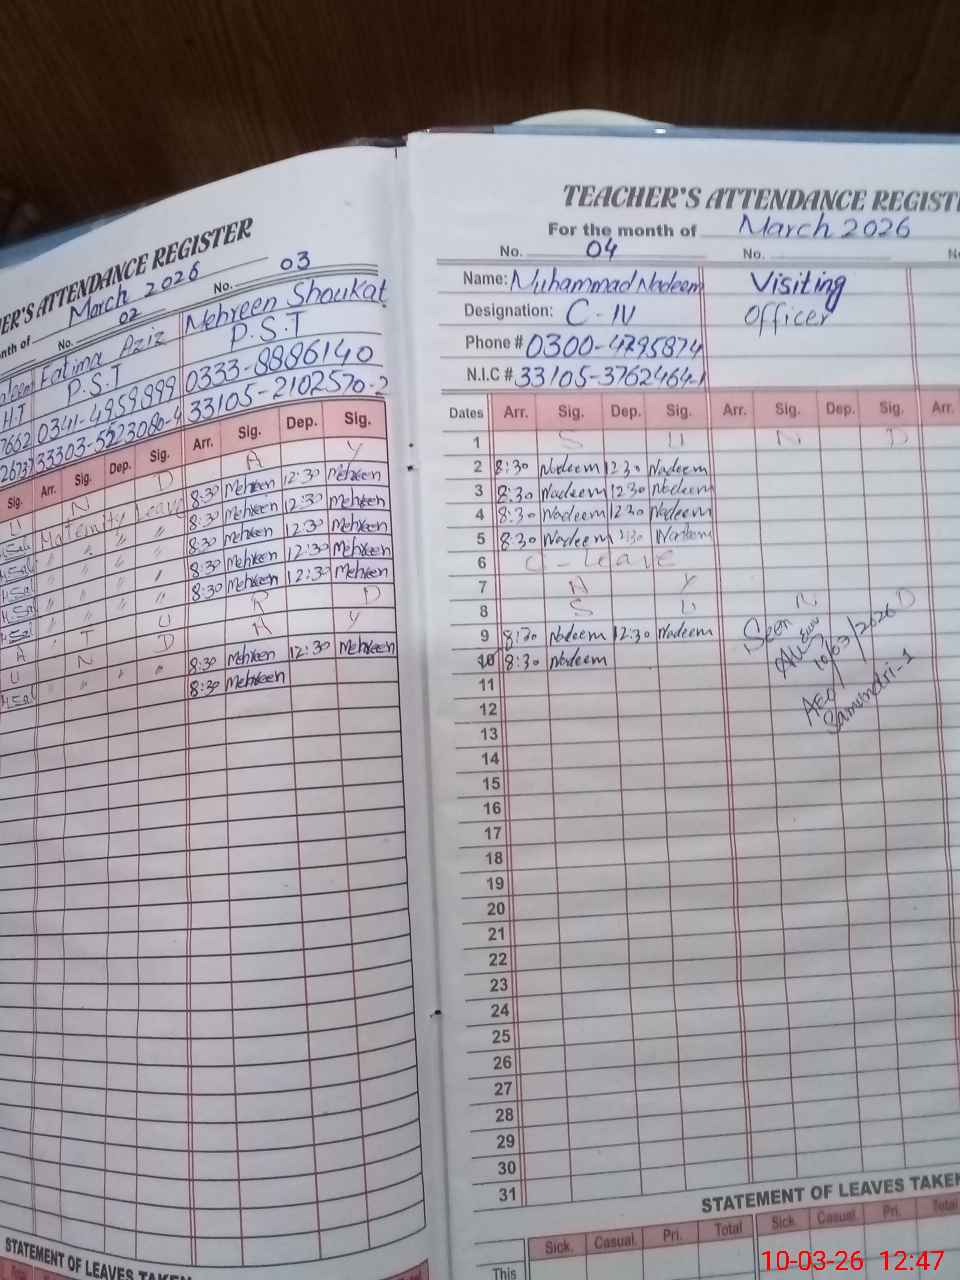 ER'S ATTENDANCE REGISTER
nth of March 2026
No. 02 No. 03
Fatima Aziz Mehreen Shoukat
H.T P.S.T P.S.T
0341-4959899 0333-8886140
33105-2102570-2
Sig. Arr. Sig. Dep. Sig. Arr. Sig. Dep. Sig.
U N D A Y
Maternity Leave 8:30 Mehreen 12:30 Mehreen
" " " 8:30 Mehreen 12:30 Mehreen
" " " 8:30 Mehreen 12:30 Mehreen
" " " 8:30 Mehreen 12:30 Mehreen
" " " 8:30 Mehreen 12:30 Mehreen
A T U R D
U N D A Y
" " " 8:30 Mehreen 12:30 Mehreen
8:30 Mehreen
STATEMENT OF LEAVES TAKEN
TEACHER'S ATTENDANCE REGISTE
For the month of March 2026
No. 04 No.
Name: Muhammad Nadeem Visiting
Designation: C-IV officer
Phone # 0300-4795874
N.I.C # 33105-3762464-1
Dates Arr. Sig. Dep. Sig. Arr. Sig. Dep. Sig. Arr.
1 S U N D
2 8:30 Nadeem 12:30 Nadeem
3 8:30 Nadeem 12:30 Nadeem
4 8:30 Nadeem 12:30 Nadeem
5 8:30 Nadeem 12:30 Nadeem
6 C-Leave
7 A Y
8 S U N D
9 8:30 Nadeem 12:30 Nadeem Seen
10 8:30 Nadeem 10/03/2026
11
12 AEO
13 Samundri-1
14
15
16
17
18
19
20
21
22
23
24
25
26
27
28
29
30
31
STATEMENT OF LEAVES TAKEN
Sick. Casual. Pri. Total Sick. Casual. Pri. Total
This
10-03-26 12:47